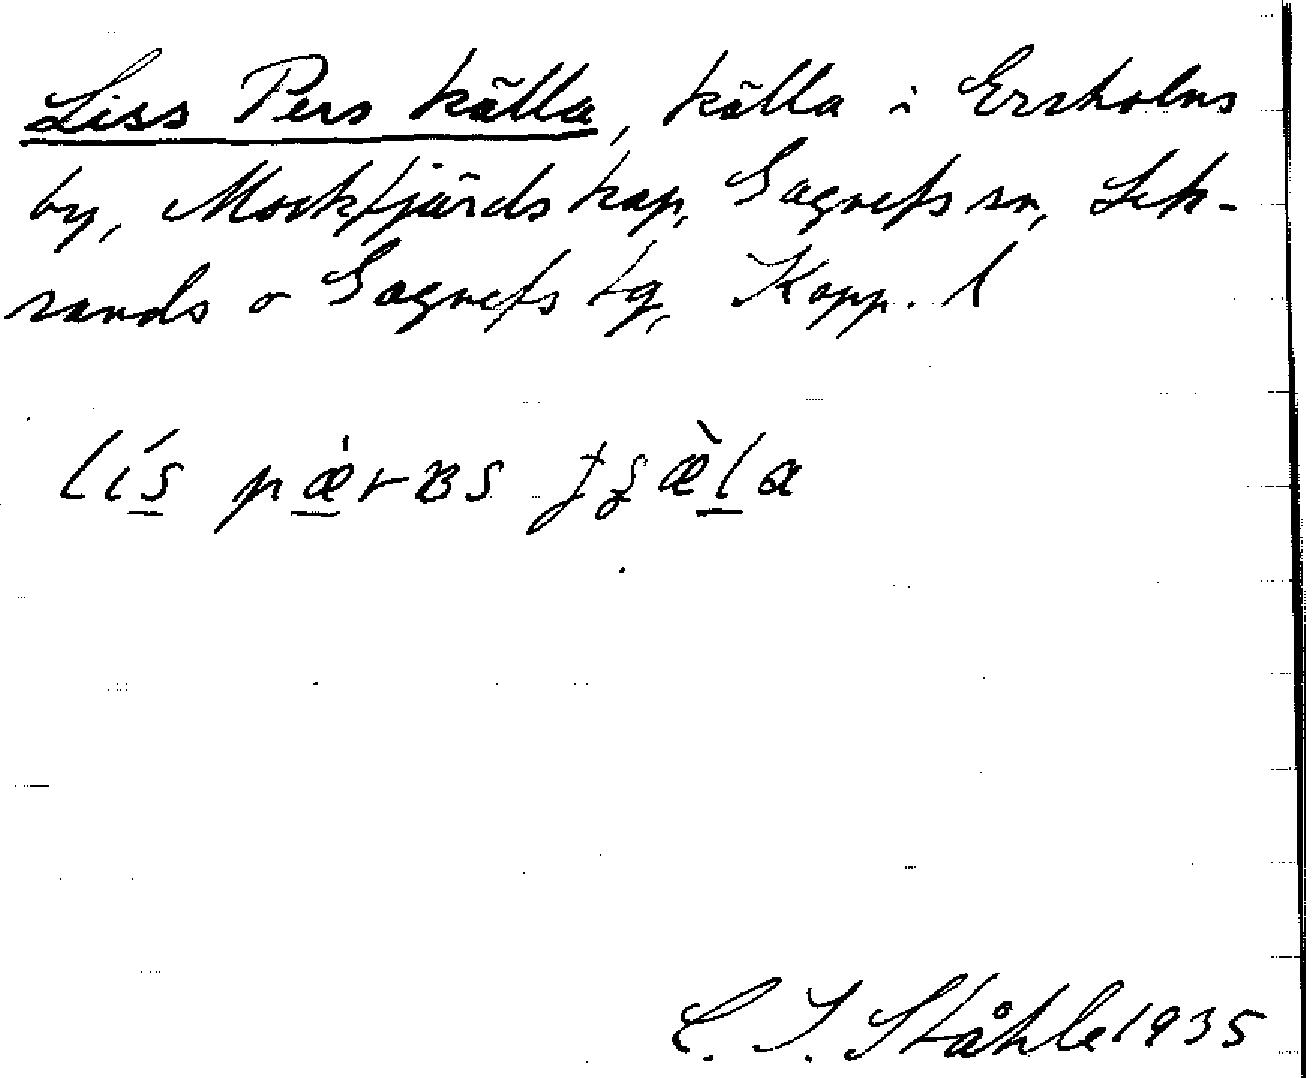 Liss Pers källa, källa i Ersholns
by, Mockfjärds kap, Gagnefs sn, Lek-
sands o Gagnefs tg, Kopp. l
C. I. Ståhle 1935